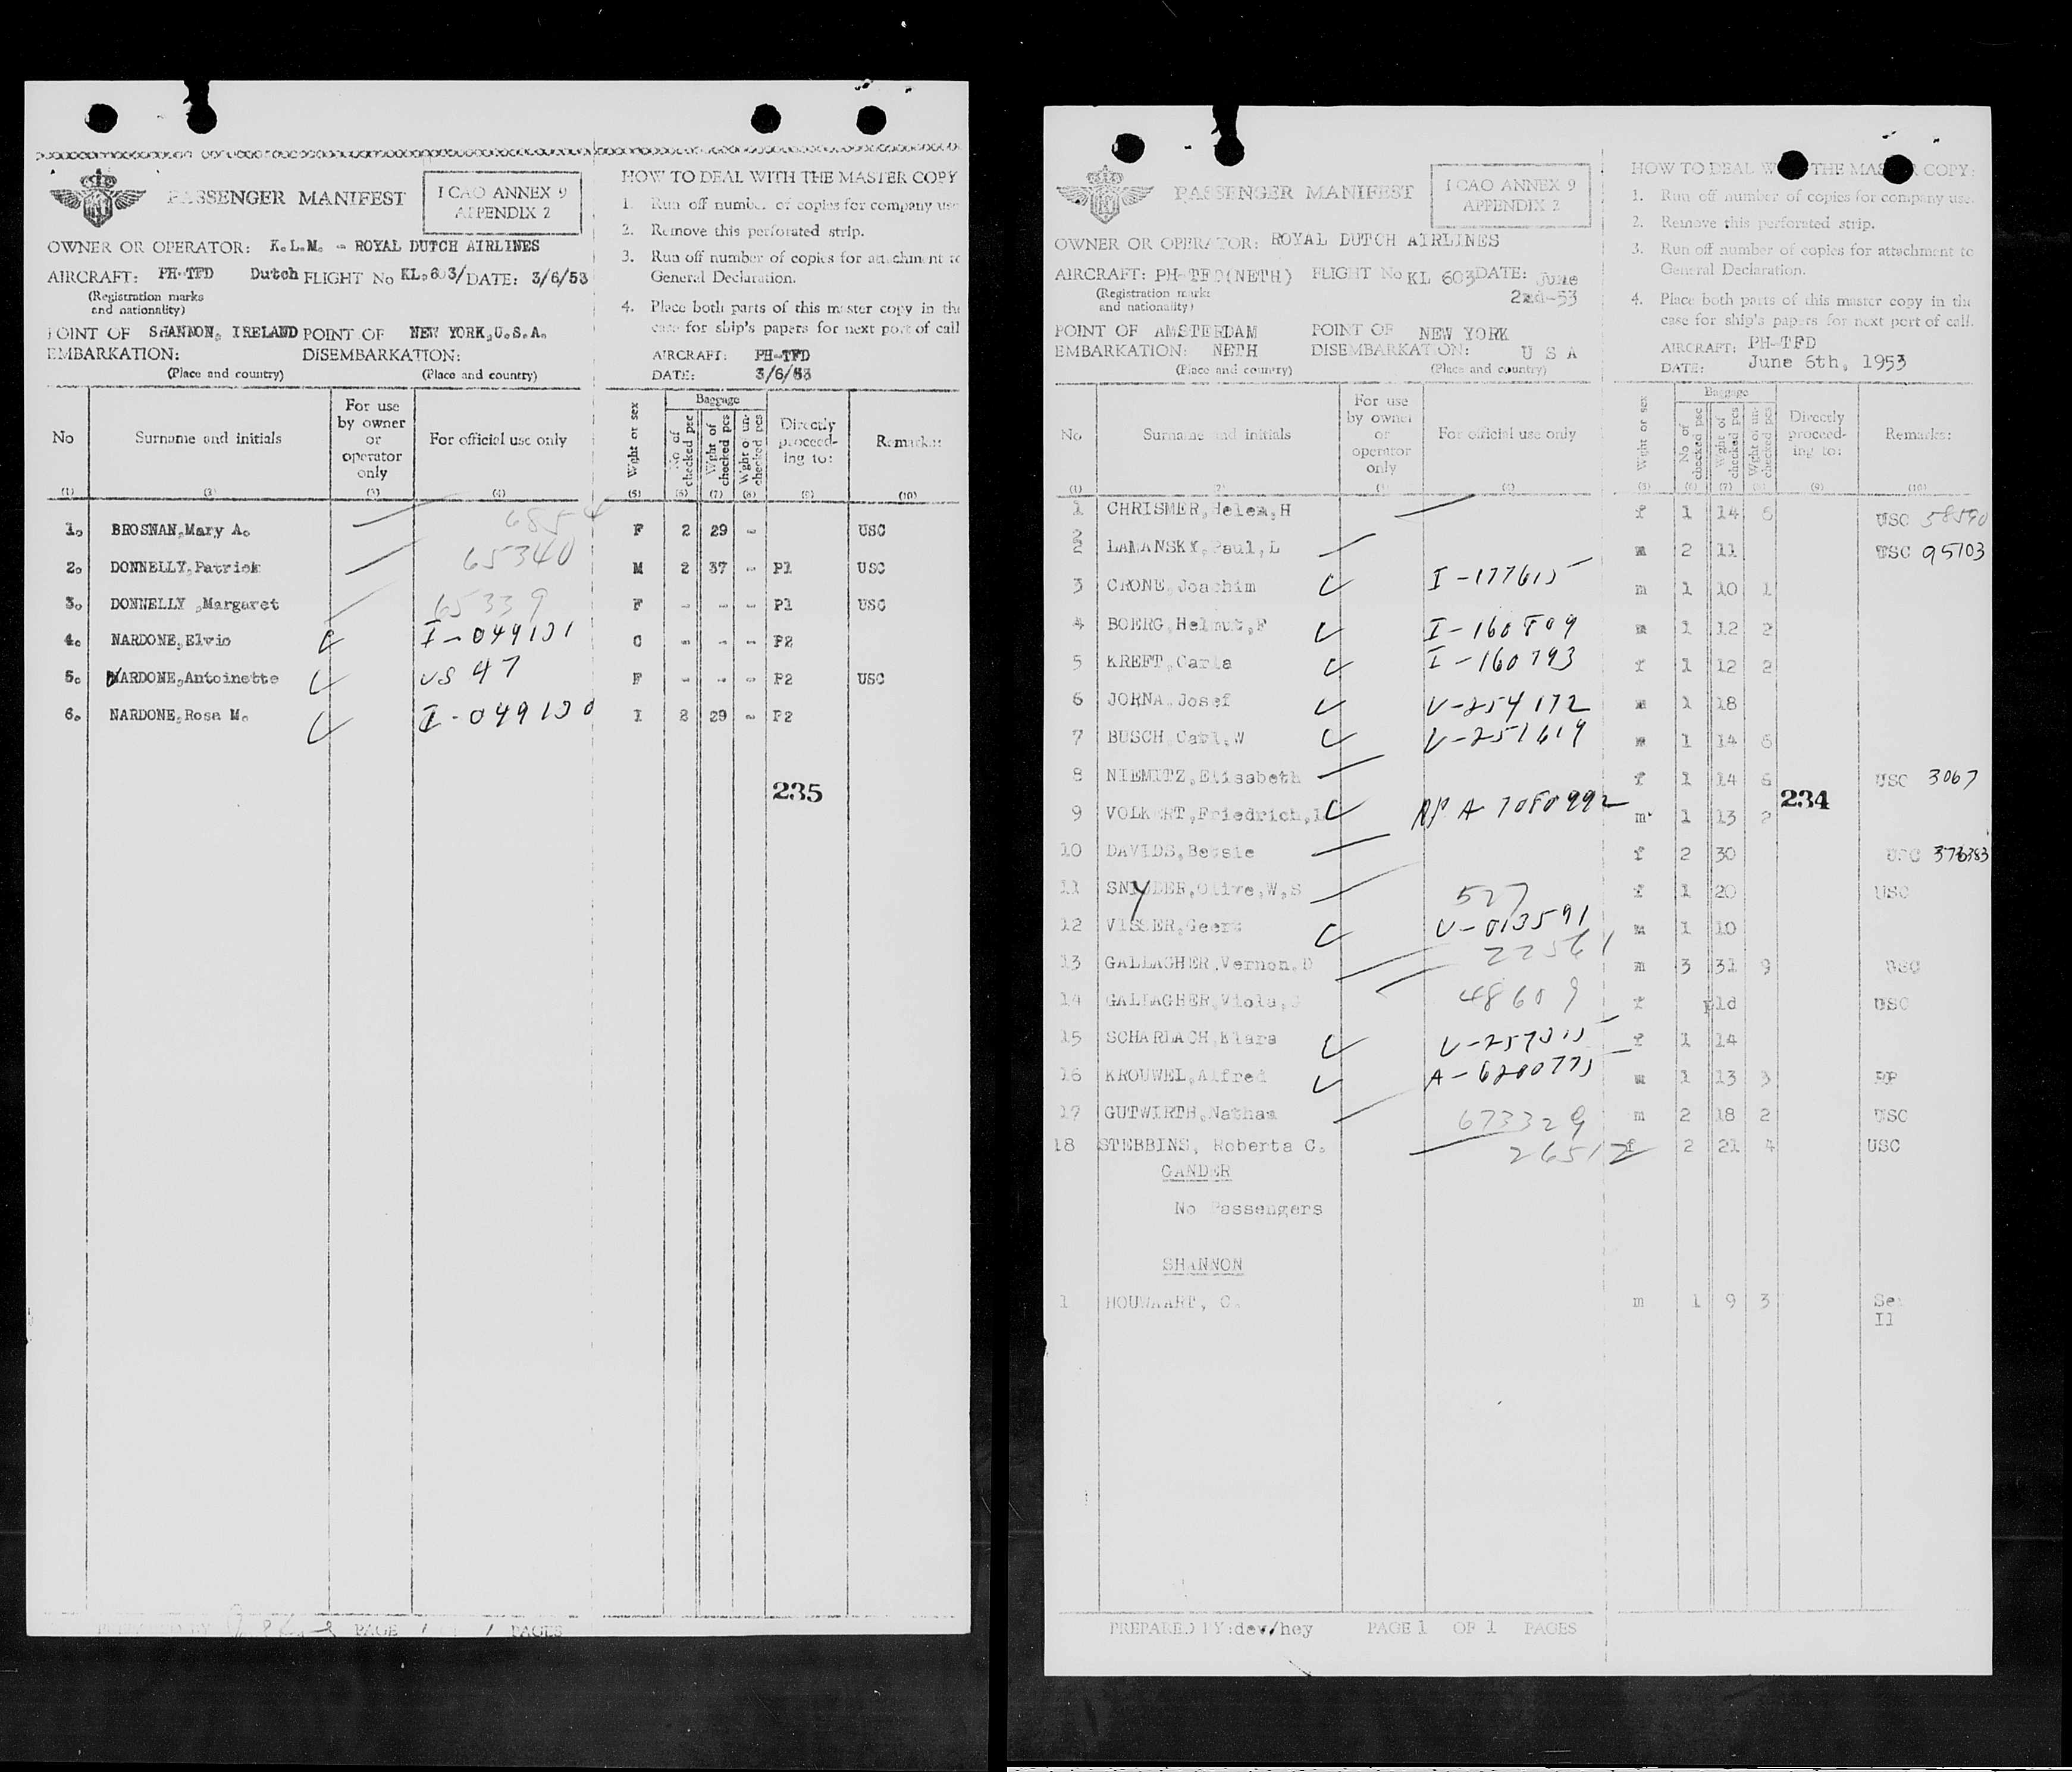 PASSENGER MANIFEST
I CAO ANNEX 9
APPENDIX 2
OWNER OR OPERATOR: K.L.M. - ROYAL DUTCH AIRLINES
AIRCRAFT: PH-TFD Dutch FLIGHT No KL.603/ DATE: 3/6/53
(Registration marks
and nationality)
POINT OF SHANNON, IRELAND POINT OF NEW YORK,U.S.A.
EMBARKATION: DISEMBARKATION:
(Place and country) (Place and country)
HOW TO DEAL WITH THE MASTER COPY
1. Run off number of copies for company use
2. Remove this perforated strip.
3. Run off number of copies for attachment to
General Declaration.
4. Place both parts of this master copy in the
case for ship's papers for next port of call
AIRCRAFT: PH-TFD
DATE: 3/6/53
No Surname and initials For use by owner or operator only For official use only Wght or sex Baggage No of checked pec Wght of checked pcs Wght of un-checked pcs Directly proceed-ing to: Remarks:
(1) (2) (3) (4) (5) (6) (7) (8) (9) (10)
1. BROSNAN,Mary A. F 2 29 - USC
2. DONNELLY,Patrick 65340 M 2 37 - P1 USC
3. DONNELLY ,Margaret 65339 F - - - P1 USC
4. NARDONE,Elvio I-049101 C - - - P2
5. NARDONE,Antoinette US 47 F - - - P2 USC
6. NARDONE,Rosa M. I-049100 I 2 29 - P2
235
PAGE 1 1 PAGES
PASSENGER MANIFEST
I CAO ANNEX 9
APPENDIX 2
OWNER OR OPERATOR: ROYAL DUTCH AIRLINES
AIRCRAFT: PH-TFD(NETH) FLIGHT No KL 603 DATE: June
2nd-53
(Registration marks
and nationality)
POINT OF AMSTERDAM POINT OF NEW YORK
EMBARKATION: NETH DISEMBARKATION: U S A
(Place and country) (Place and country)
HOW TO DEAL WITH THE MASTER COPY:
1. Run off number of copies for company use.
2. Remove this perforated strip.
3. Run off number of copies for attachment to
General Declaration.
4. Place both parts of this master copy in the
case for ship's papers for next port of call.
AIRCRAFT: PH-TFD
DATE: June 6th, 1953
No Surname and initials For use by owner or operator only For official use only Wght or sex Baggage No of checked pec Wght of checked pcs Wght of un-checked pcs Directly proceed-ing to: Remarks:
(1) (2) (3) (4) (5) (6) (7) (8) (9) (10)
1 CHRISMER,Helen,H f 1 14 6 USC 58590
2
2 LAMANSKY,Paul,L m 2 11 USC 95103
3 CRONE,Joachim I-177615 m 1 10 1
4 BOERG,Helmut,F I-160809 m 1 12 2
5 KREFT,Carla I-160793 f 1 12 2
6 JORNA,Josef V-254172 m 1 18
7 BUSCH,Carl,W V-251619 m 1 14 6
8 NIEMITZ,Elisabeth f 1 14 6 USC 3067
234
9 VOLKERT,Friedrich,L RP A 7080992 m 1 13 2
10 DAVIDS,Bessie f 2 30 USC 373383
11 SNYDER,Olive,W,S 527 f 1 20 USC
12 VISSER,Geert V-013591 m 1 10
13 GALLAGHER,Vernon,D 22561 m 3 31 9 USC
14 GALLAGHER,Viola, 48609 f pld USC
15 SCHARLACH,Klara V-257315 f 1 14
16 KROUWEL,Alfred A-6200775 m 1 13 3 RP
17 GUTWIRTH,Nathan 673329 m 2 18 2 USC
18 STEBBINS, Roberta C. 26512 f 2 21 4 USC
GANDER
No Passengers
SHANNON
1 HOUWAART, C. m 1 9 3 Se
Il
PREPARED BY:dev/hey PAGE 1 OF 1 PAGES